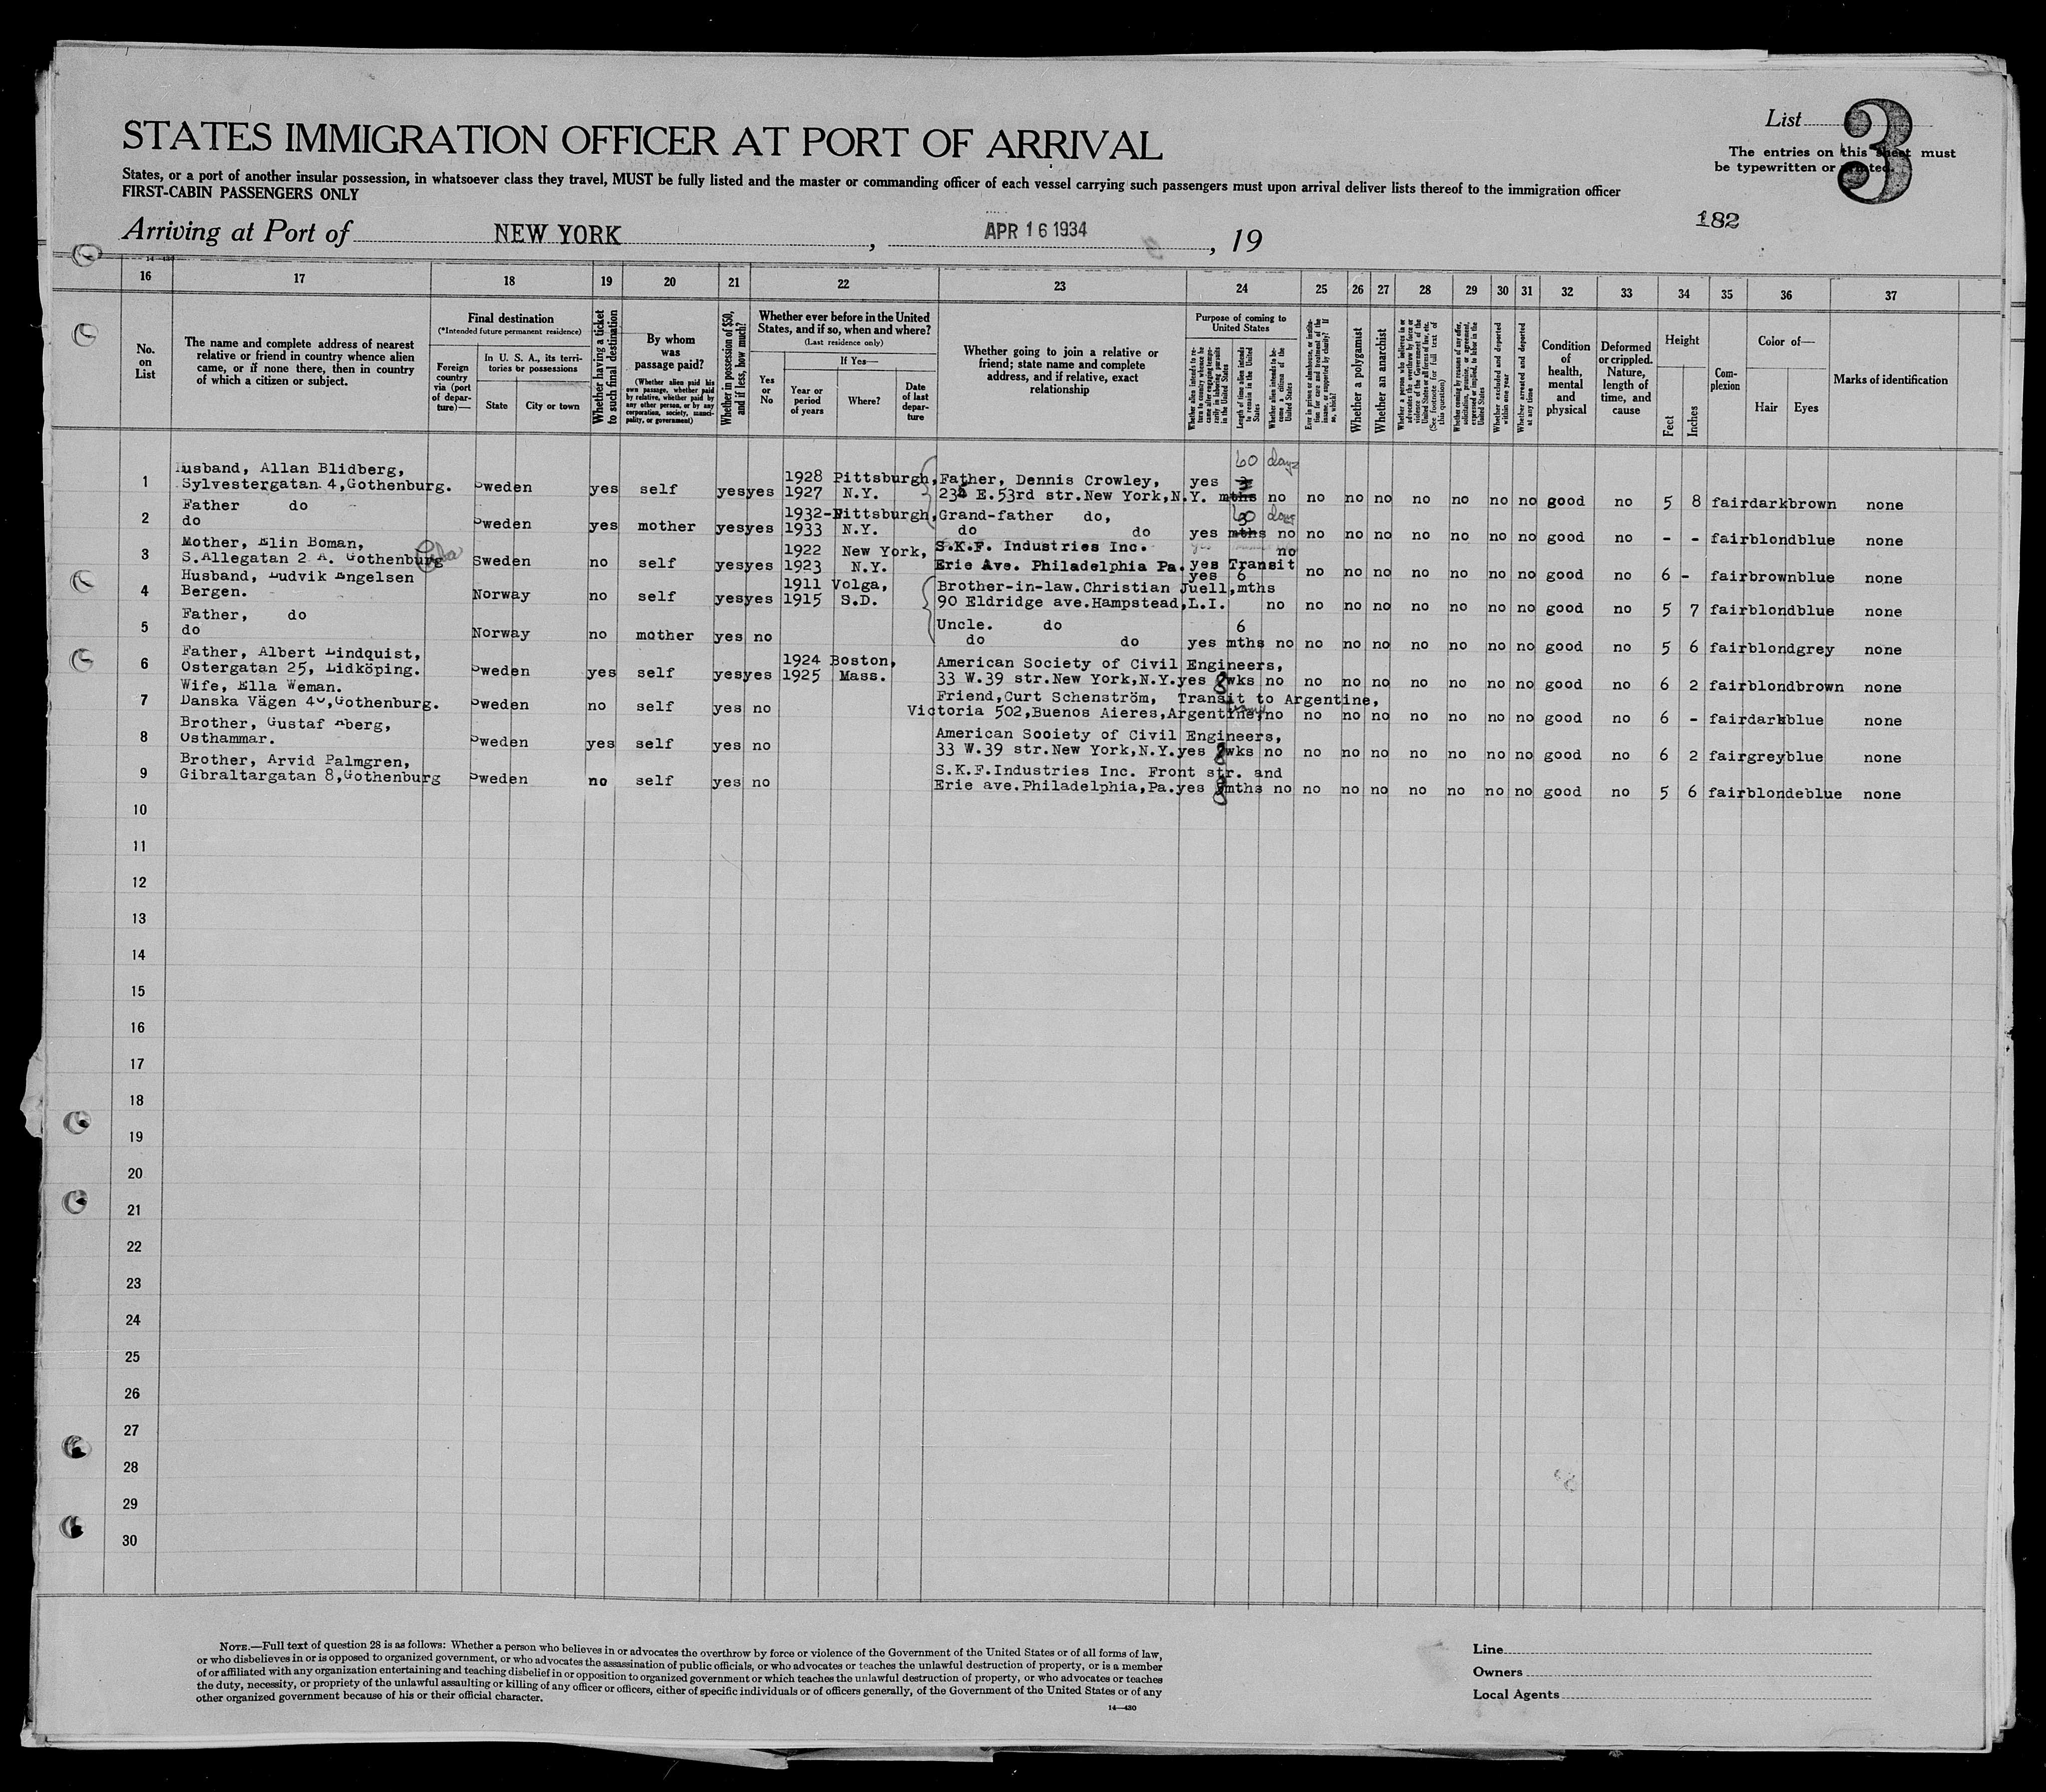 List 3
STATES IMMIGRATION OFFICER AT PORT OF ARRIVAL
The entries on this sheet must
be typewritten or printed.
States, or a port of another insular possession, in whatsoever class they travel, MUST be fully listed and the master or commanding officer of each vessel carrying such passengers must upon arrival deliver lists thereof to the immigration officer
FIRST-CABIN PASSENGERS ONLY
182
Arriving at Port of NEW YORK, APR 16 1934, 19
16 17 18 19 20 21 22 23 24 25 26 27 28 29 30 31 32 33 34 35 36 37
No. on List
The name and complete address of nearest relative or friend in country whence alien came, or if none there, then in country of which a citizen or subject.
Final destination
(*Intended future permanent residence)
Foreign country via (port of departure)—
In U. S. A., its territories or possessions
State City or town
Whether having a ticket to such final destination
By whom was passage paid?
(Whether alien paid his own passage, whether paid by relative, whether paid by any other person, or by any corporation, society, municipality, or government)
Whether in possession of $50, and if less, how much?
Whether ever before in the United States, and if so, when and where?
(Last residence only)
If Yes—
Yes or No
Year or period of years
Where?
Date of last departure
Whether going to join a relative or friend; state name and complete address, and if relative, exact relationship
Purpose of coming to United States
Whether alien intends to return to country whence he came after engaging temporarily in laboring pursuits in the United States
Length of time alien intends to remain in the United States
Whether alien intends to become a citizen of the United States
Ever in prison or almshouse, or institution for care and treatment of the insane, or supported by charity? If so, which?
Whether a polygamist
Whether an anarchist
Whether a person who believes in or advocates the overthrow by force or violence of the Government of the United States or all forms of law, etc. (See footnote for full text of this question)
Whether coming by reason of any offer, solicitation, promise, or agreement, expressed or implied, to labor in the United States
Whether excluded and deported within one year
Whether arrested and deported at any time
Condition of health, mental and physical
Deformed or crippled. Nature, length of time, and cause
Height
Feet Inches
Complexion
Color of—
Hair Eyes
Marks of identification
60 days
1 Husband, Allan Blidberg, 1928 Pittsburgh, Father, Dennis Crowley, yes 3
Sylvestergatan 4, Gothenburg. Sweden yes self yes yes 1927 N.Y. E.53rd str.New York,N.Y. mths no no no no no no no no good no 5 8 fair dark brown none
2 Father do 1932- Pittsburgh, Grand-father do, 60 days
do Sweden yes mother yes yes 1933 N.Y. do do yes mths no no no no no no no no good no - - fair blond blue none
3 Mother, Elin Boman, 1922 New York, S.K.F. Industries Inc. no
S.Allegatan 2 A. Gothenburg Sweden no self yes yes 1923 N.Y. Erie Ave. Philadelphia Pa. yes Transit no no no no no no no good no 6 - fair brown blue none
4 Husband, Ludvik Engelsen 1911 Volga, Brother-in-law.Christian Juell, yes 6 mths
Bergen. Norway no self yes yes 1915 S.D. 90 Eldridge ave.Hampstead,L.I. no no no no no no no no good no 5 7 fair blond blue none
5 Father, do Uncle. do 6
do Norway no mother yes no do do yes mths no no no no no no no no good no 5 6 fair blond grey none
6 Father, Albert Lindquist, 1924 Boston, American Society of Civil Engineers,
Ostergatan 25, Lidköping. Sweden yes self yes yes 1925 Mass. 33 W.39 str.New York,N.Y. yes 8 wks no no no no no no no no good no 6 2 fair blond brown none
7 Wife, Ella Weman. Friend,Curt Schenström, Transit to Argentine,
Danska Vägen 40,Gothenburg. Sweden no self yes no Victoria 502,Buenos Aieres,Argentine, no no no no no no no no good no 6 - fair dark blue none
8 Brother, Gustaf Aberg, American Society of Civil Engineers,
Osthammar. Sweden yes self yes no 33 W.39 str.New York,N.Y. yes 8 wks no no no no no no no no good no 6 2 fair grey blue none
9 Brother, Arvid Palmgren, S.K.F.Industries Inc. Front str. and
Gibraltargatan 8,Gothenburg Sweden no self yes no Erie ave.Philadelphia,Pa. yes 8 mths no no no no no no no no good no 5 6 fair blonde blue none
10
11
12
13
14
15
16
17
18
19
20
21
22
23
24
25
26
27
28
29
30
NOTE.—Full text of question 28 is as follows: Whether a person who believes in or advocates the overthrow by force or violence of the Government of the United States or of all forms of law,
or who disbelieves in or is opposed to organized government, or who advocates the assassination of public officials, or who advocates or teaches the unlawful destruction of property, or is a member
of or affiliated with any organization entertaining and teaching disbelief in or opposition to organized government or which teaches the unlawful destruction of property, or who advocates or teaches
the duty, necessity, or propriety of the unlawful assaulting or killing of any officer or officers, either of specific individuals or of officers generally, of the Government of the United States or of any
other organized government because of his or their official character.
14—430
Line
Owners
Local Agents